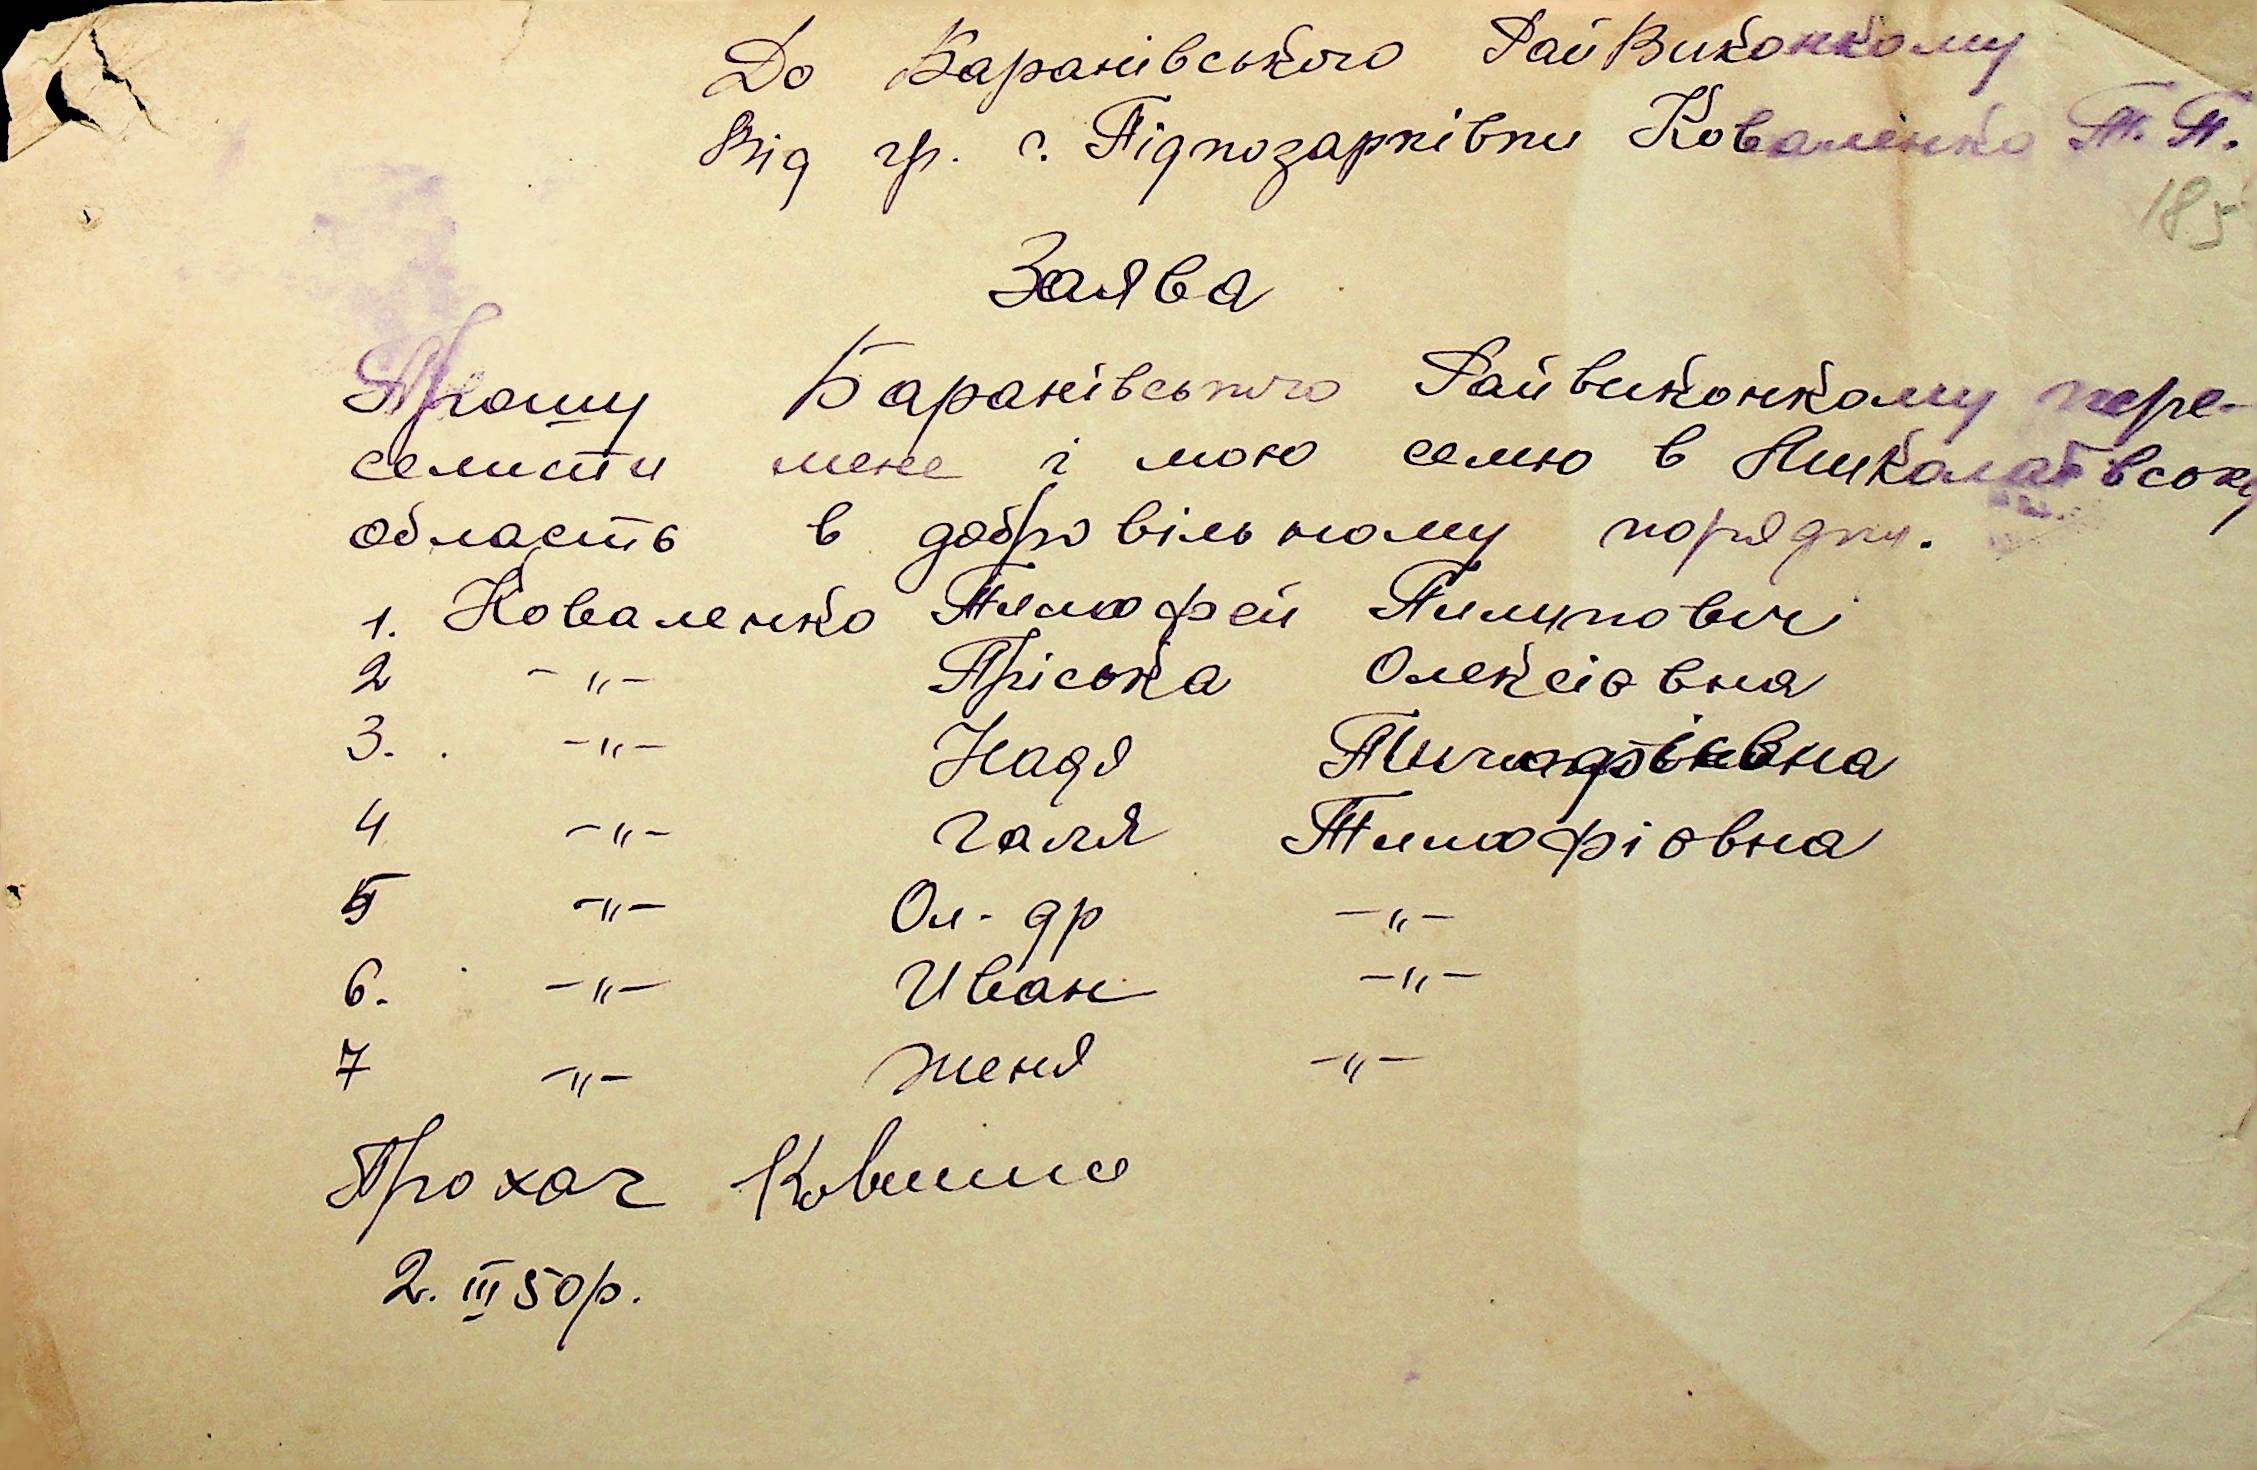 До Баранівського РайВиконкому
Від гр. с. Підпозарнівки Коваленко Т. П.
185
Заява
Прошу Баранівського Райвиконкому пере-
селисти мене і мою семю в Николаївську
область в добровільному порядку.
1. Коваленко Тимофей Пилипович
2 -"- Пріська Олексіовна
3. -"- Надя Тимофіївна
4 -"- Галя Тимофіовна
5 -"- Ол-др -"-
6. -"- Иван -"-
7 -"- Женя -"-
Прохач
2. III 50р.